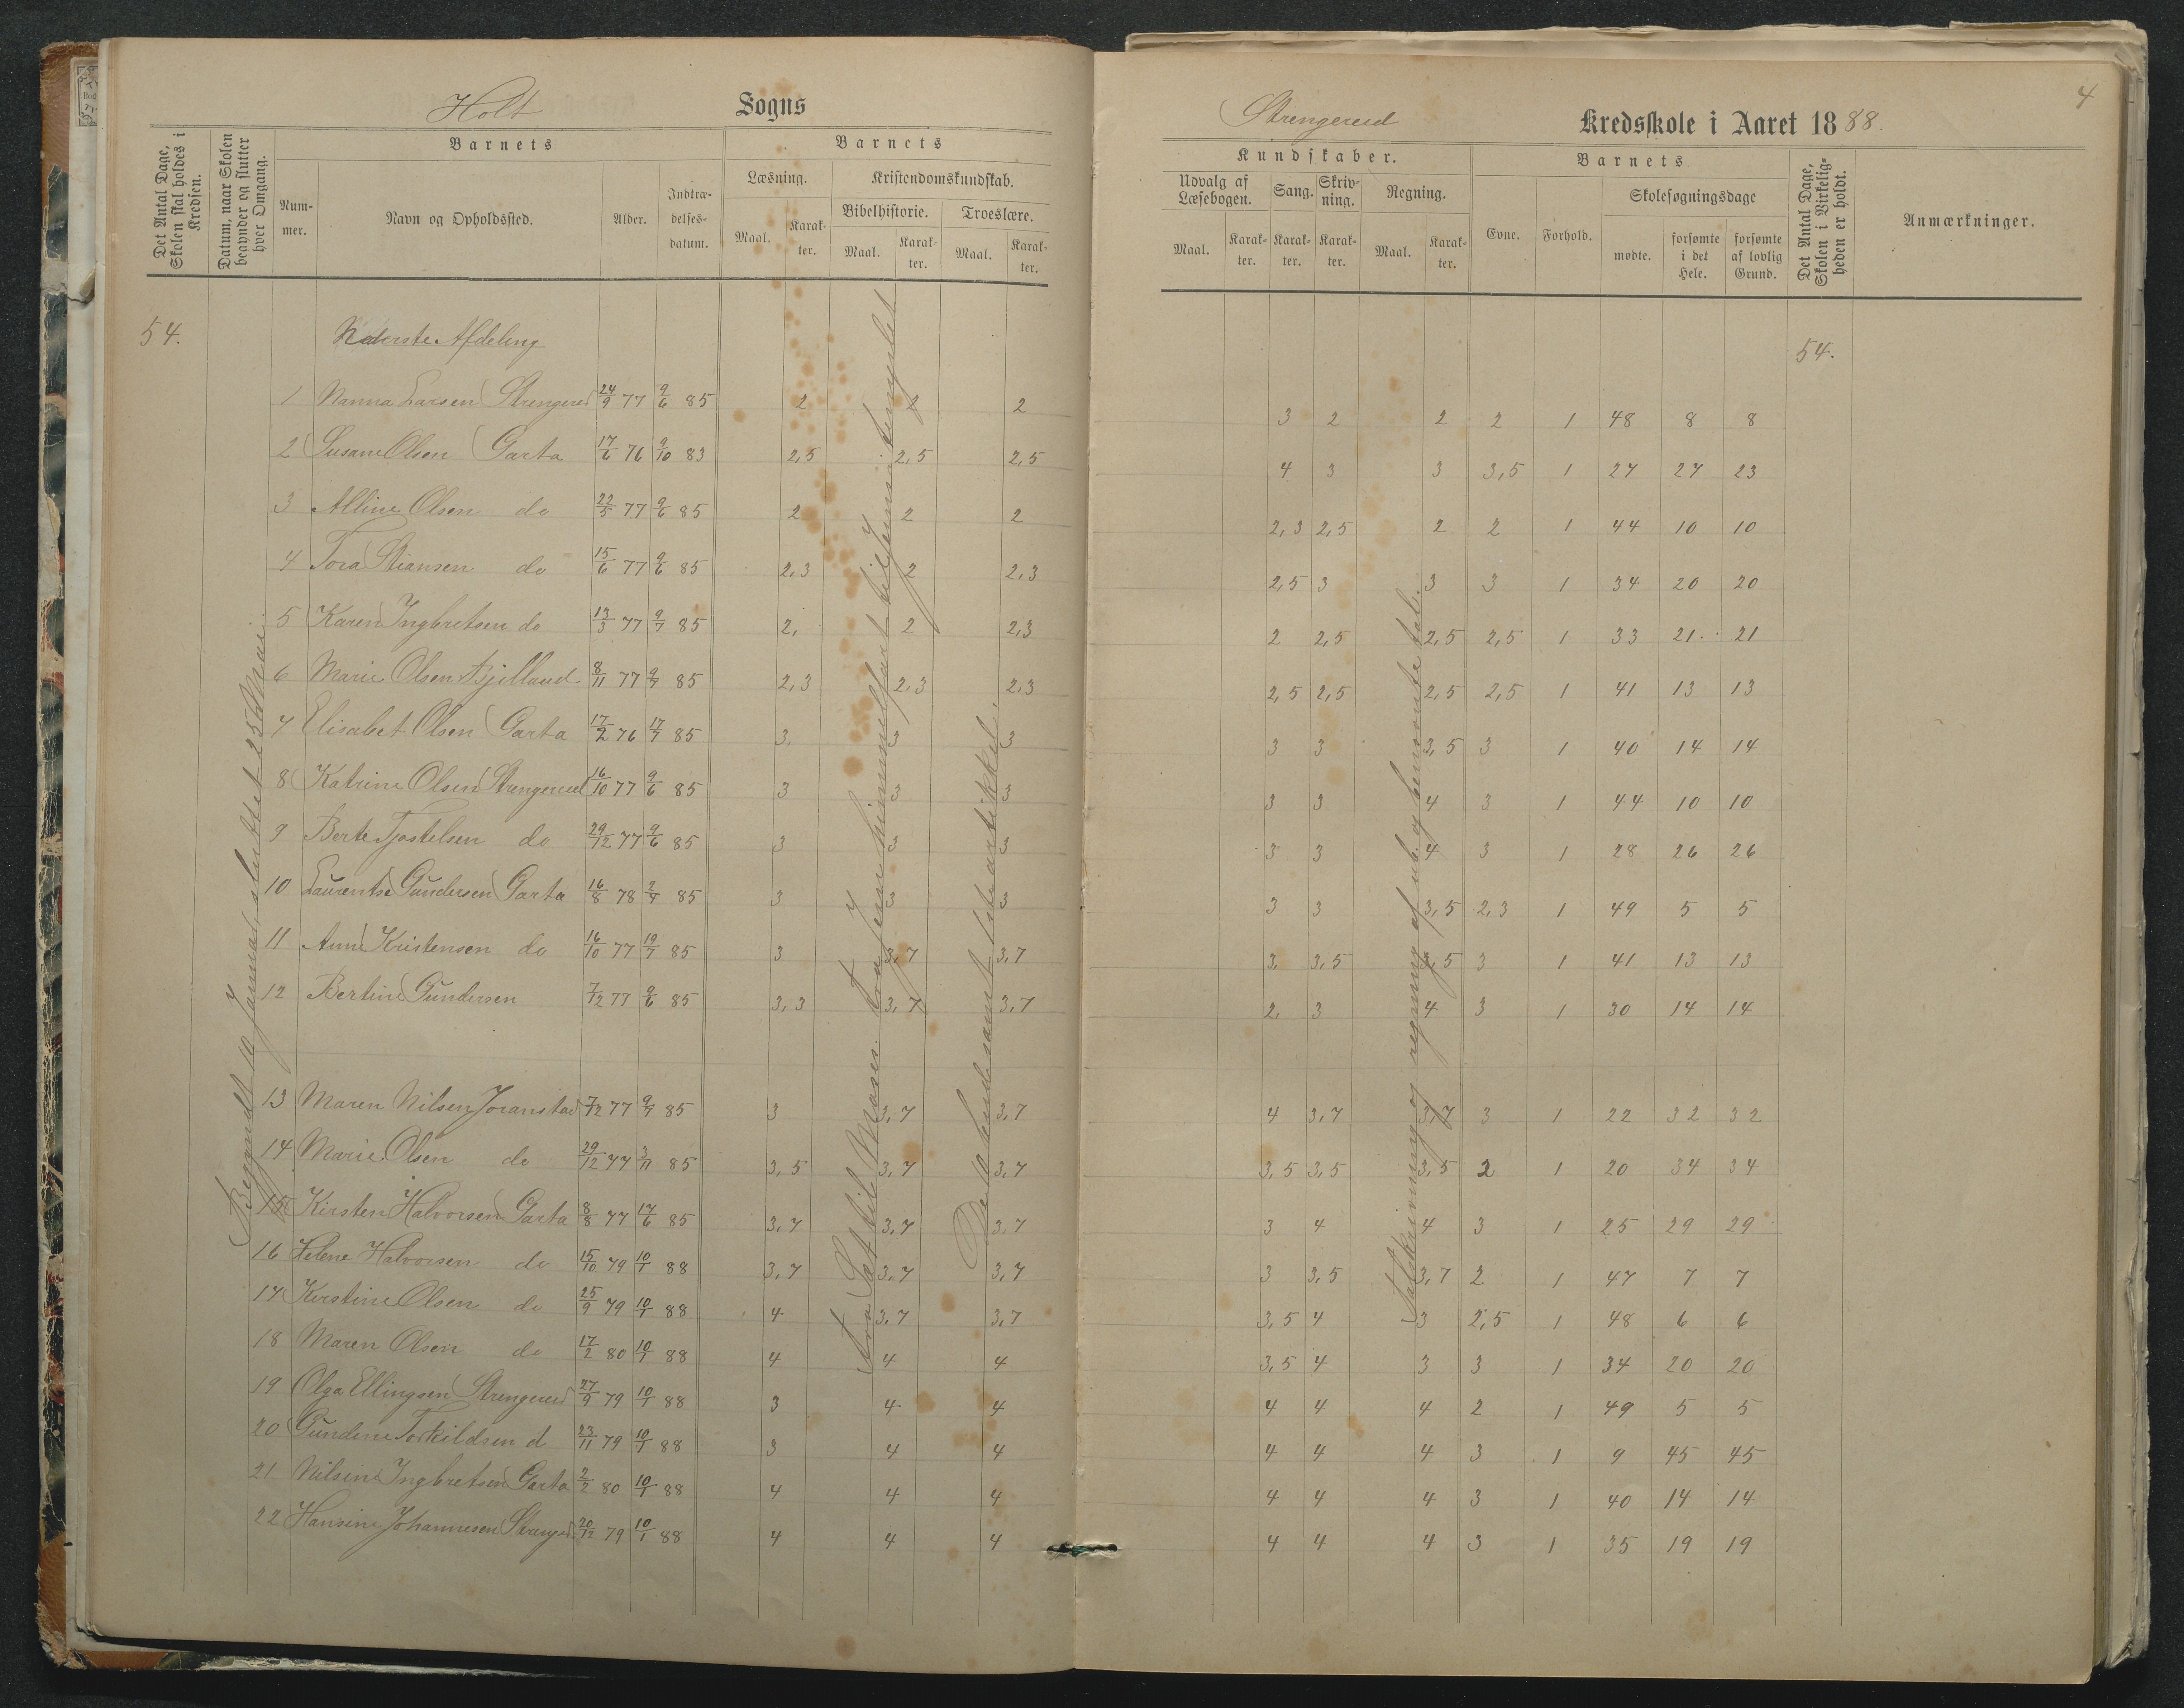 Holt Sogns
Det Antal Dage, Skolen skal holdes i Kredsen.
Datum, naar Skolen begynder og slutter hver Omgang.
Barnets
Nummer.
Navn og Opholdssted.
Alder.
Indtrædelsesdatum.
Barnets
Læsning.
Maal.
Karakter.
Kristendomskundskab.
Bibelhistorie.
Maal.
Karakter.
Troeslære.
Maal.
Karakter.
54.
Nederste Afdeling
1 Nanna Larsen Strengereid 24/9 77 9/6 85 2 2 2
2 Susane Olsen Garta 17/6 76 9/10 83 2,5 2,5 2,5
3 Alline Olsen do 22/5 77 9/6 85 2 2 2
4 Tora Stiansen do 15/6 77 9/6 85 2,3 2 2,3
5 Karen Ingbretsen do 13/3 77 9/7 85 2, 2 2,3
6 Marie Olsen 8/11 77 9/7 85 2,3 2,3 2,3
7 Elisabet Olsen Garta 17/2 76 17/7 85 3, 3 3
8 Katrine Olsen Strengereid 16/10 77 9/6 85 3 3 3
9 Berte Tjostelsen do 29/12 77 9/6 85 3 3 3
10 Laurentse Gundersen Garta 16/8 78 2/7 85 3 3 3
11 Anne Kristensen do 16/10 77 19/7 85 3 3,7 3,7
12 Bertine Gundersen 7/12 77 9/6 85 3,3 3,7 3,7
13 Maren Nilsen Joranstad 7/12 77 9/7 85 3 3,7 3,7
14 Marie Olsen do 29/12 77 3/11 85 3,5 3,7 3,7
15 Kirsten Halvorsen Garta 8/8 77 17/6 85 3,7 3,7 3,7
16 Helene Halvorsen do 15/10 79 10/1 88 3,7 3,7 3,7
17 Kirstine Olsen do 25/9 79 10/1 88 4 3,7 3,7
18 Maren Olsen do 17/2 80 10/1 88 4 4 4
19 Olga Ellingsen Strengereid 27/9 79 10/1 88 3 4 4
20 Gundine Torkildsen d 23/11 79 10/1 88 3 4 4
21 Nilsine Ingbretsen Garta 2/2 80 10/1 88 4 4 4
22 Hansine Johannesen Strenger 20/12 79 10/1 88 4 4 4
Begyndt 10 Januar, sluttet 25 Mai.
Fra Set til Moses. Fra Jesu himmelfart til
De 10 bud samt 1ste artikkel.
4
Strengereid Kredsskole i Aaret 1888.
Kundskaber.
Udvalg af Læsebogen.
Maal.
Karakter.
Sang.
Karakter.
Skrivning.
Karakter.
Regning.
Maal.
Karakter.
Barnets
Evne.
Forhold.
Skolesøgningsdage
mødte.
forsømte i det Hele.
forsømte af lovlig Grund.
Det Antal Dage, Skolen i Virkeligheden er holdt.
Anmærkninger.
54.
3 2 2 2 1 48 8 8
4 3 3 3,5 1 27 27 23
2,3 2,5 2 2 1 44 10 10
2,5 3 3 3 1 34 20 20
2 2,5 2,5 2,5 1 33 21. 21
2,5 2,5 2,5 2,5 1 41 13 13
3 3 3,5 3 1 40 14 14
3 3 4 3 1 44 10 10
3 3 4 3 1 28 26 26
3 3 3,5 2,3 1 49 5 5
3, 3,5 3,5 3 1 41 13 13
2, 3 4 3 1 30 14 14
4 3,7 3,7 3 1 22 32 32
3,5 3,5 3,5 2 1 20 34 34
3 4 4 3 1 25 29 29
3 3,5 3,7 2 1 47 7 7
3,5 4 3 2,5 1 48 6 6
3,5 4 3 3 1 34 20 20
4 4 4 2 1 49 5 5
4 4 4 3 1 9 45 45
4 4 4 3 1 40 14 14
4 4 4 3 1 35 19 19
Talskrivning og regning af ub. og benævnte tal.